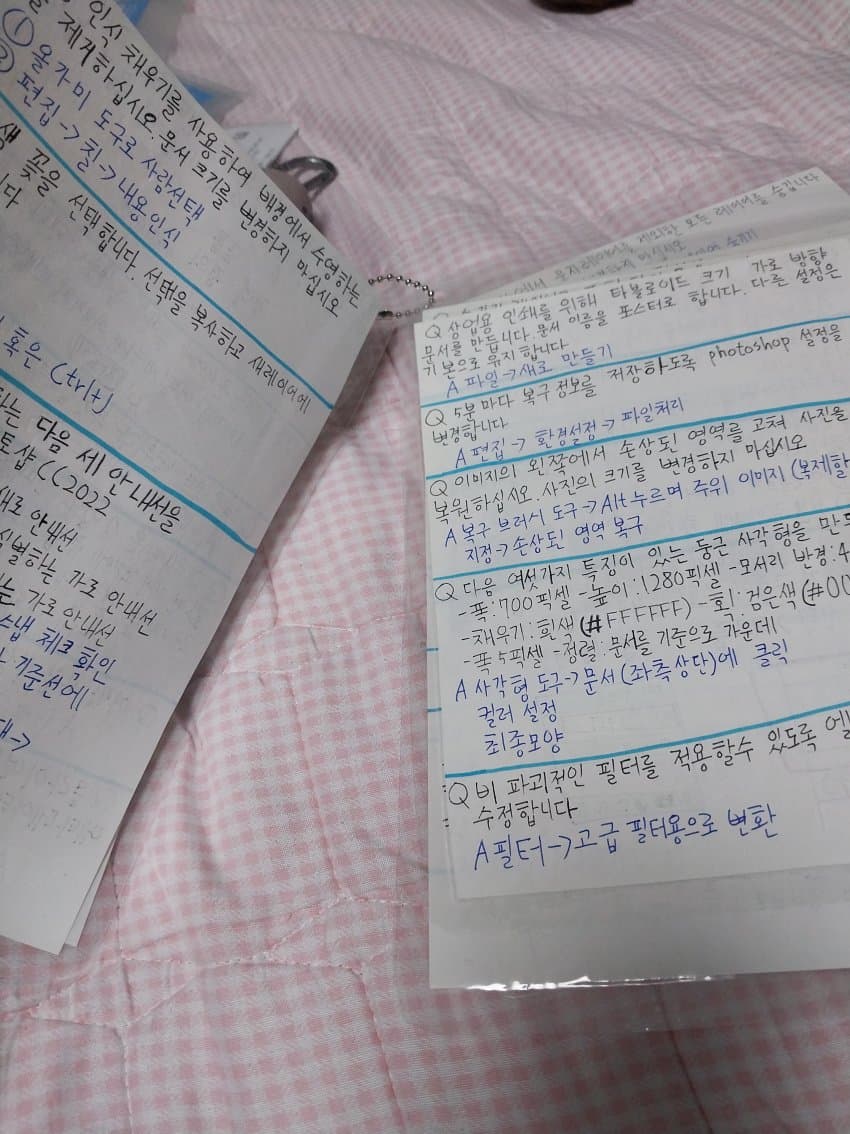 인식 채우기를 사용하여 배경에서 수영하는
제거하십시오. 문서 크기를 변경하지 마십시오
① 올가미 도구로 사람선택
② 편집 -> 칠 -> 내용인식
꽃을 선택합니다. 선택을 복사하고 새레이어에
니다
혹은 Ctrl+J
하는 다음 세 안내선을
토샵 CC2022
새로 안내선
식별하는 가로 안내선
는 가로 안내선
스냅 체크 확인
기준선에
->
제외한 모든 레이어를 숨깁니다
마십시오
Q 상업용 인쇄를 위해 타블로이드 크기 가로 방향
문서를 만듭니다. 문서 이름을 포스터로 합니다. 다른 설정은
기본으로 유지합니다
A 파일 -> 새로 만들기
Q 5분마다 복구정보를 저장하도록 photoshop 설정을
변경합니다
A 편집 -> 환경설정 -> 파일처리
Q 이미지의 왼쪽에서 손상된 영역을 고쳐 사진을
복원하십시오. 사진의 크기를 변경하지 마십시오
A 복구 브러시 도구 -> Alt누르며 주위 이미지 (복제할
지정 -> 손상된 영역 복구
Q 다음 여섯가지 특징이 있는 둥근 사각형을 만드
-폭:700픽셀 -높이:1280픽셀 -모서리 반경:4
-채우기:흰색(#FFFFFF) -획:검은색(#00
-폭 5픽셀 -정렬:문서를 기준으로 가운데
A 사각형 도구 -> 문서(좌측상단)에 클릭
컬러 설정
최종모양
Q 비 파괴적인 필터를 적용할수 있도록
수정합니다
A 필터 -> 고급 필터용으로 변환